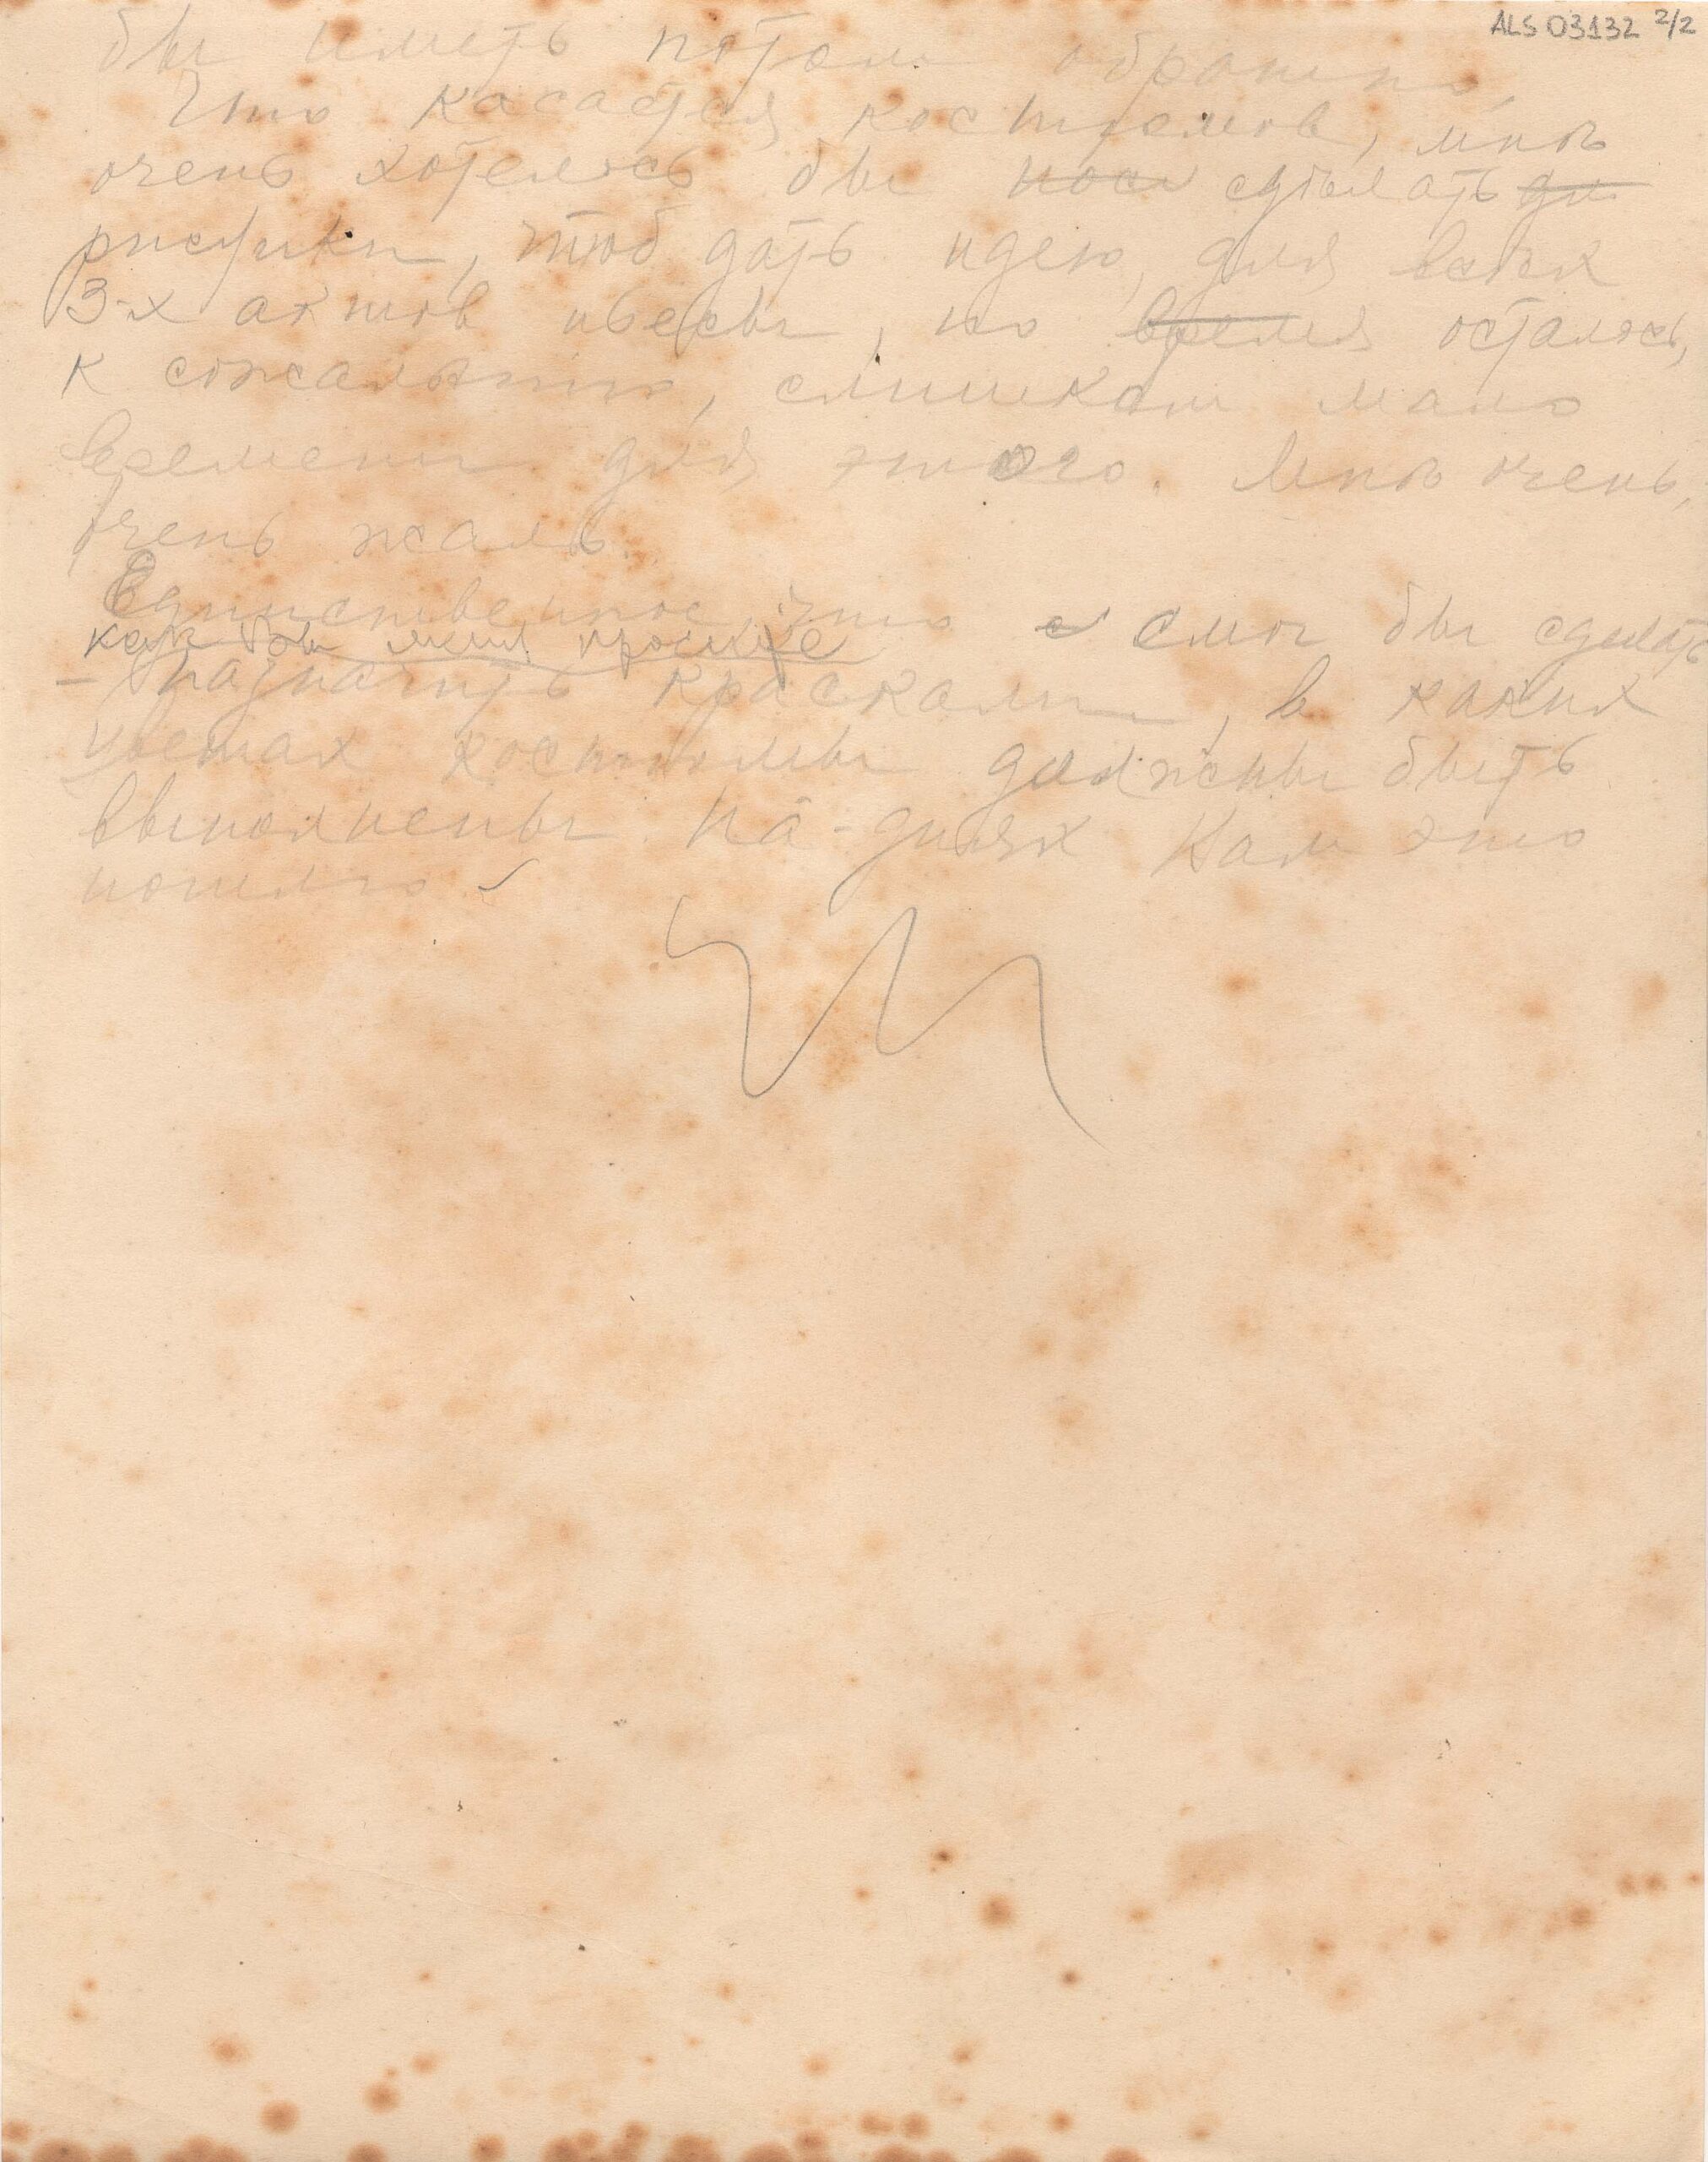 ALS 03132 2/2
бы иметь потом обратно.
Что касается костюмов, мнѣ
очень хотелось бы посл сдѣлать
рисунки, чтоб дать идею, для всѣх
3-х актов пьесы, но время осталось,
к сожалѣнию, слишком мало
времени для этого. Мнѣ очень,
очень жаль.
Единственное, что с смог бы сдѣлать
как Вы меня просите
– назначить красками, в каких
цветах костюмы должны быть
выполнены. На-днях Вам это
пошлю